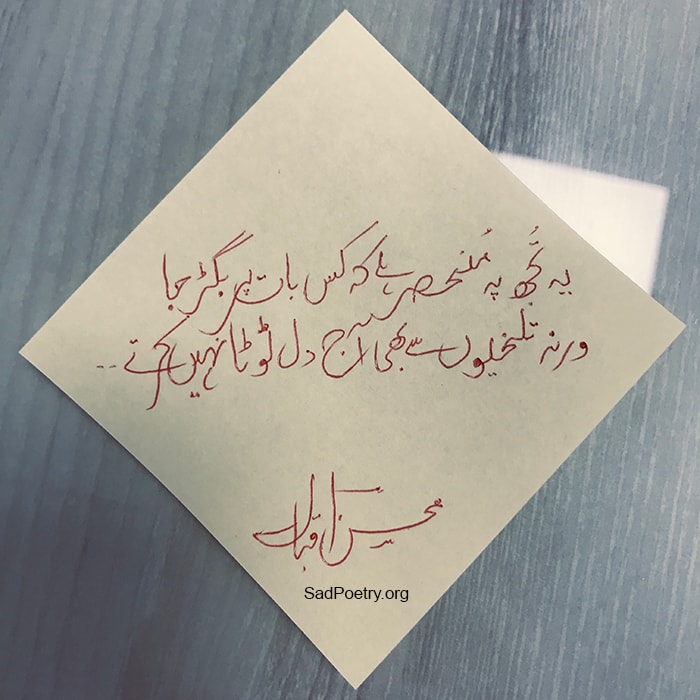 یہ تُجھ پہ مُنحصر ہے کہ کس بات پر بگڑ جا
ورنہ تلخیوں سے بھی آج دل ٹوٹا نہیں کرتے ..
محسن اقبال
SadPoetry.org